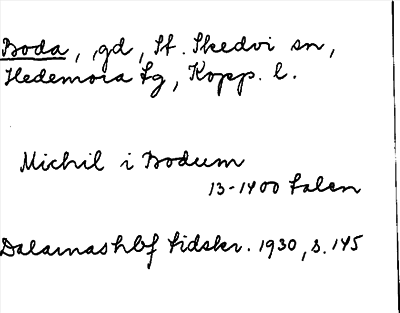 Boda, gd, St. Skedvi sn,
Hedemora tg, Kopp. l.
Michil i Bodum
13-1400 talen
Dalarnas hbf tidskr. 1930, s. 145